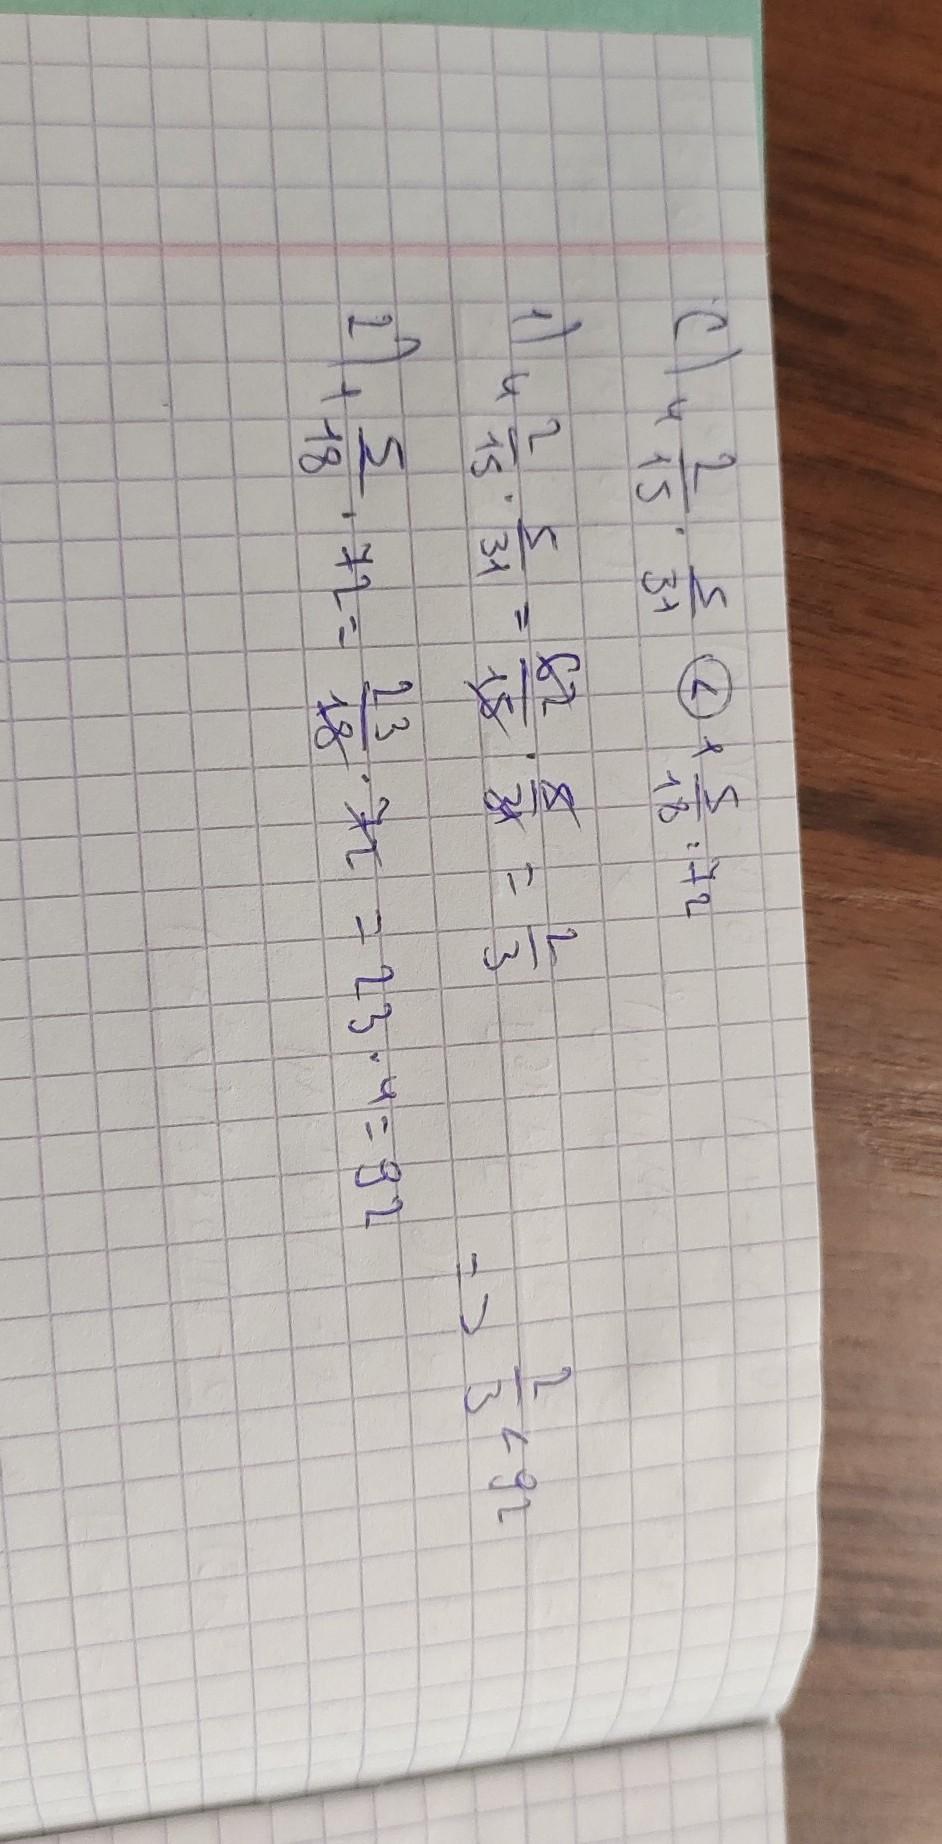 c) 4 2/15 · 5/31 < 1 5/18 · 72
1) 4 2/15 · 5/31 = 62/15 · 5/31 = 2/3
2) 1 5/18 · 72 = 23/18 · 72 = 23 · 4 = 92
=> 2/3 < 92